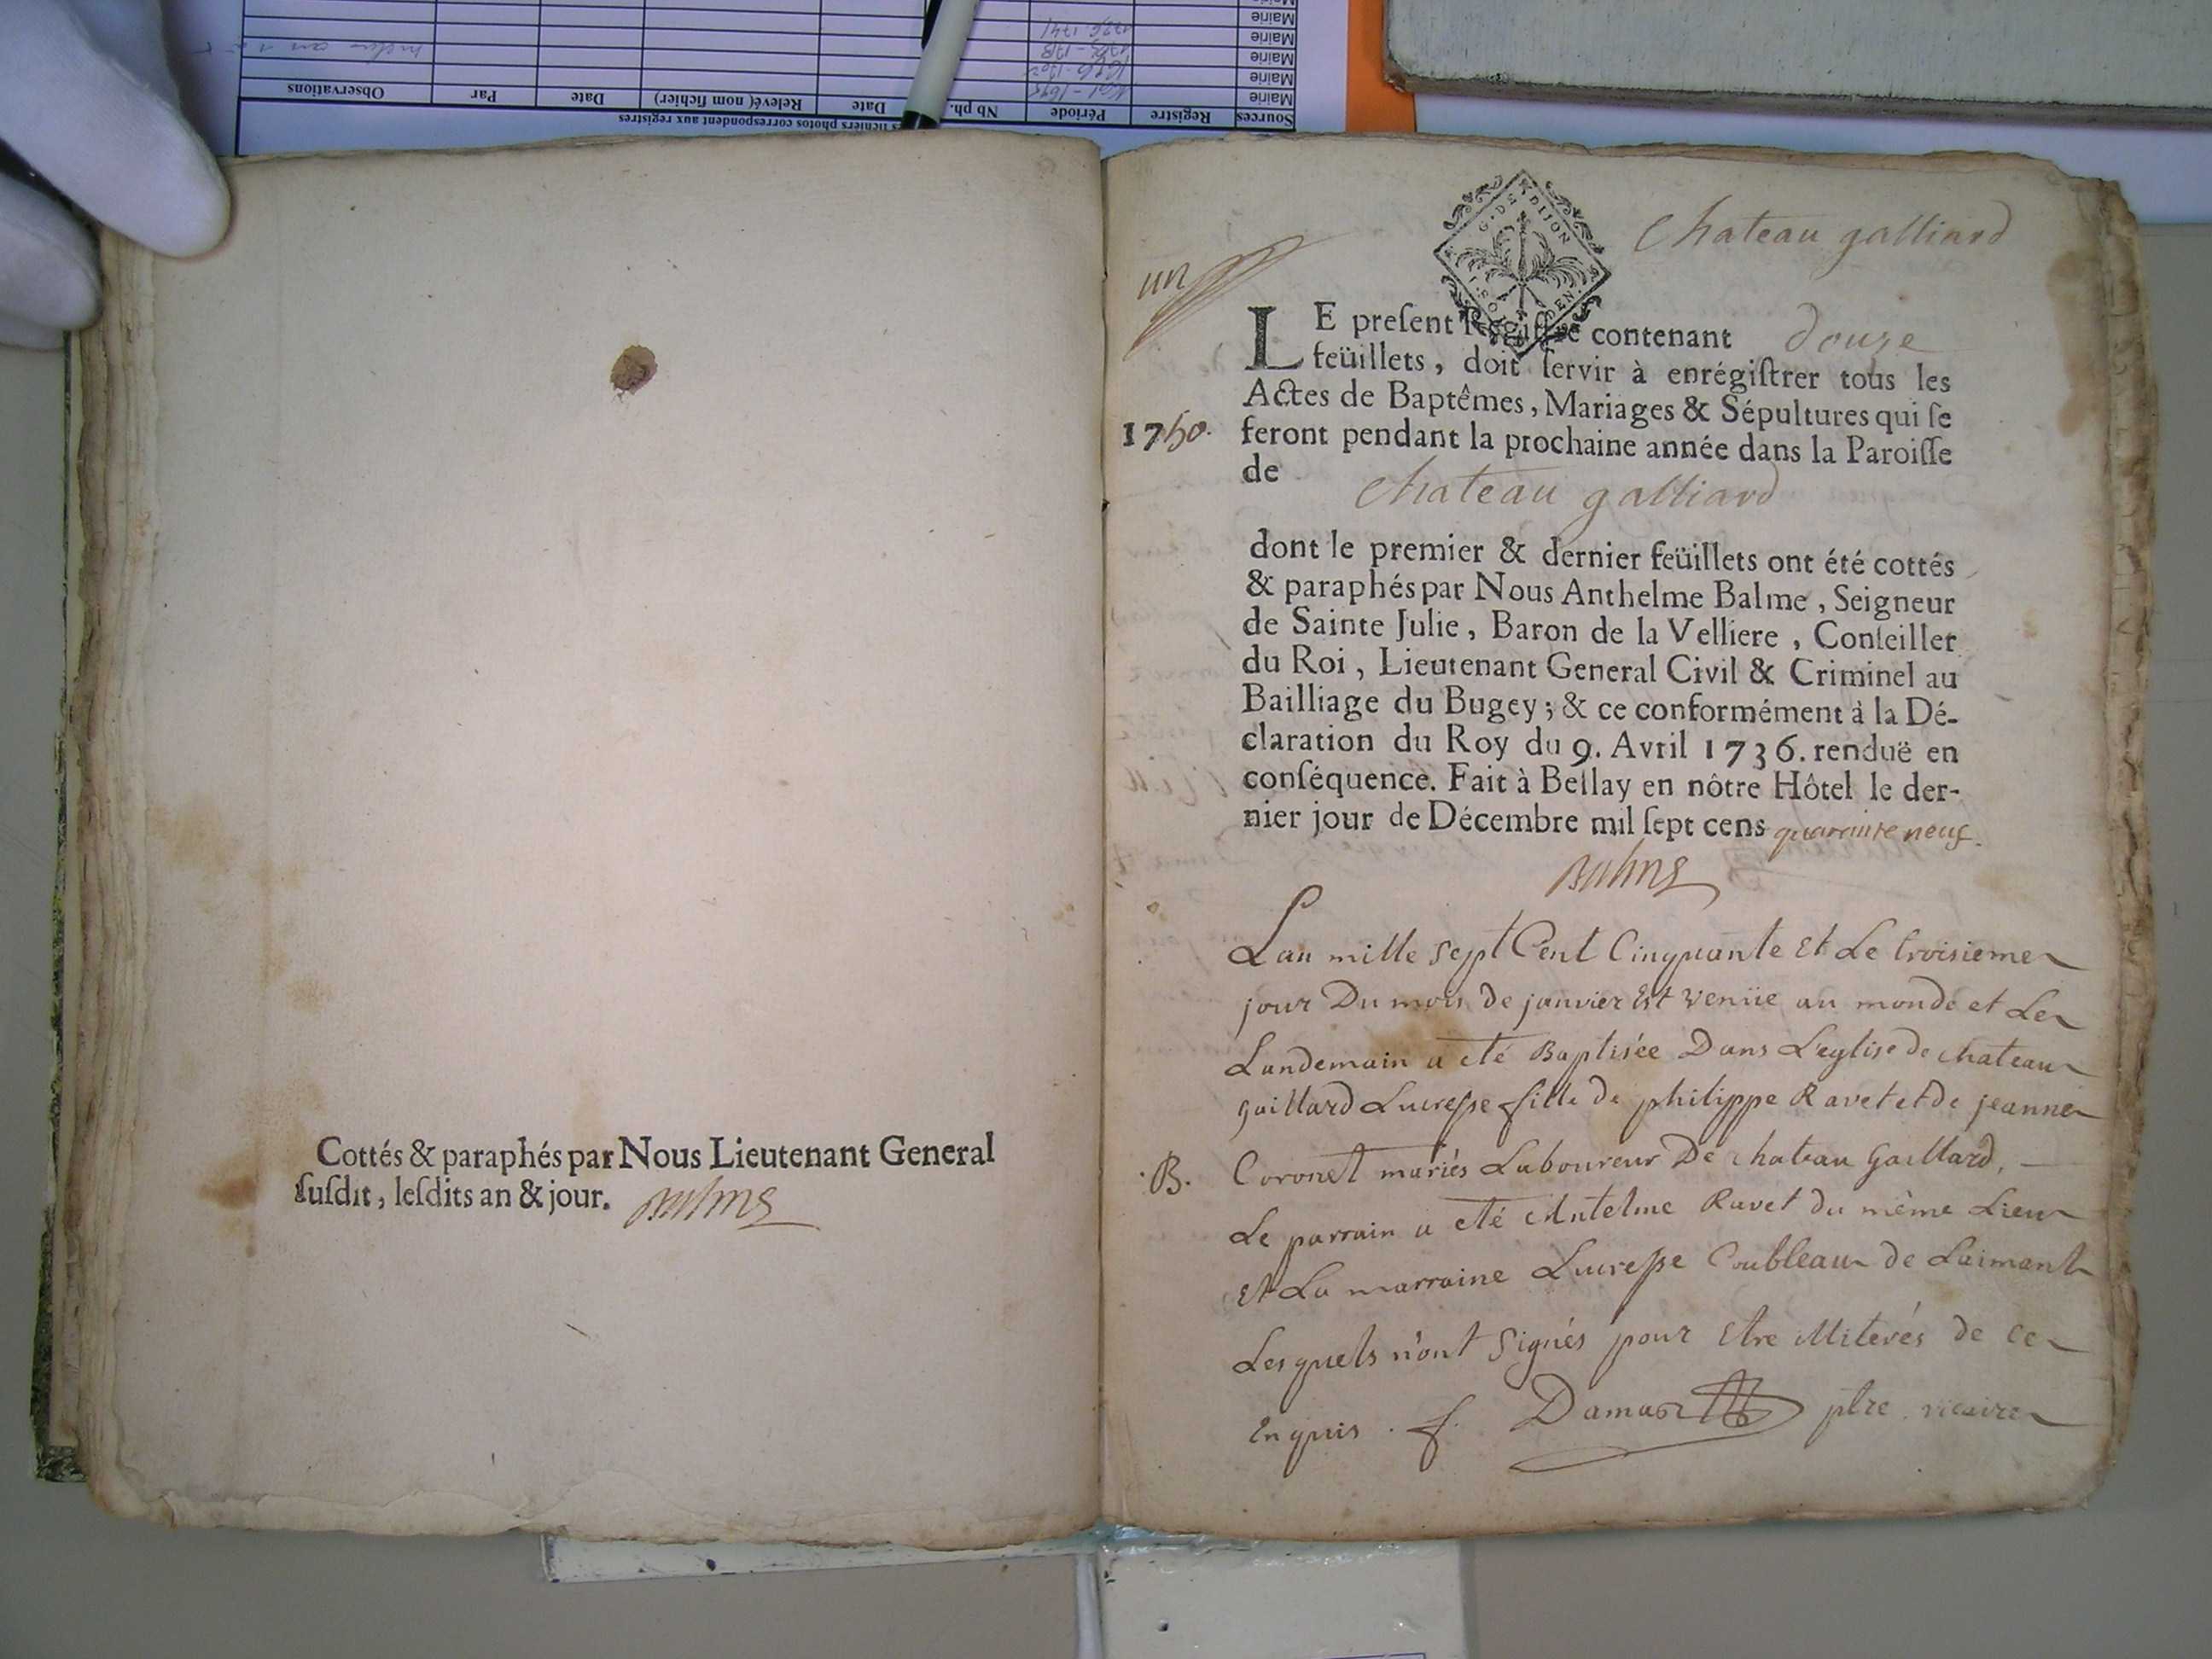 Sources Registre Période Nb ph. Date Relevé (nom fichier) Date Par Observations
Mairie
Mairie
Mairie
Mairie
Mairie
Cottés & paraphés par Nous Lieutenant General
susdit, lesdits an & jour. Balme
G. DE DIJON
Chateau galliard
un
LE present Registre contenant douze
feüillets, doit servir à enrégistrer tous les
Actes de Baptêmes, Mariages & Sépultures qui se
1750. feront pendant la prochaine année dans la Paroisse
de
chateau galliard
dont le premier & dernier feüillets ont été cottés
& paraphés par Nous Anthelme Balme, Seigneur
de Sainte Julie, Baron de la Velliere, Conseiller
du Roi, Lieutenant General Civil & Criminel au
Bailliage du Bugey; & ce conformément à la Dé-
claration du Roy du 9. Avril 1736. renduë en
conséquence. Fait à Bellay en nôtre Hôtel le der-
nier jour de Décembre mil sept cens quarante neuf.
Balme
Lan mille sept Cent Cinquante Et Le troisieme
jour Du mois de janvier Est venüe au monde et Le
Landemain a eté Baptisée Dans L'eglise de chateau
gaillard Lucresse fille de philippe Ravet et de jeanne
B. Coronet mariés Laboureur De chateau Gaillard,
Le parrain a eté Antelme Ravet du même Lieu
Et La marraine Lucresse Coubleau de Laimant
Lesquels n'ont Signés pour Etre illiterés de ce
Enquis . f. Damas ptre vicaire